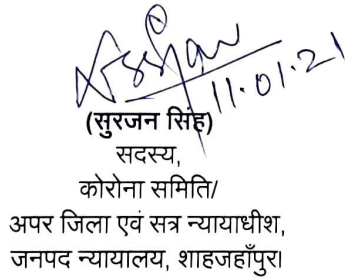 11.01.21
(सुरजन सिंह)
सदस्य,
कोरोना समिति/
अपर जिला एवं सत्र न्यायाधीश,
जनपद न्यायालय, शाहजहाँपुर।